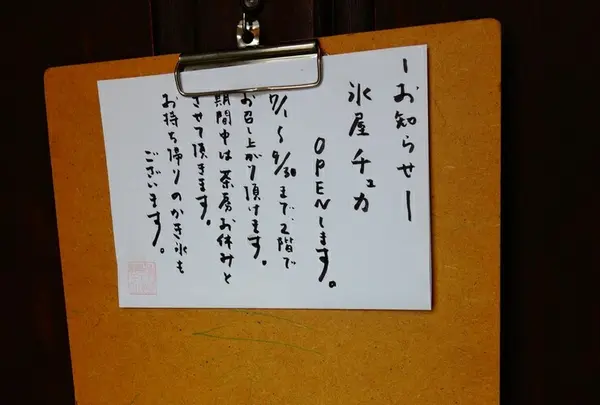 ーお知らせー
氷屋チェカ
OPENします。
7/1〜9/30まで、2階で
お召し上がり頂けます。
期間中は茶房お休みと
させて頂きます。
お持ち帰りのかき氷も
ございます。